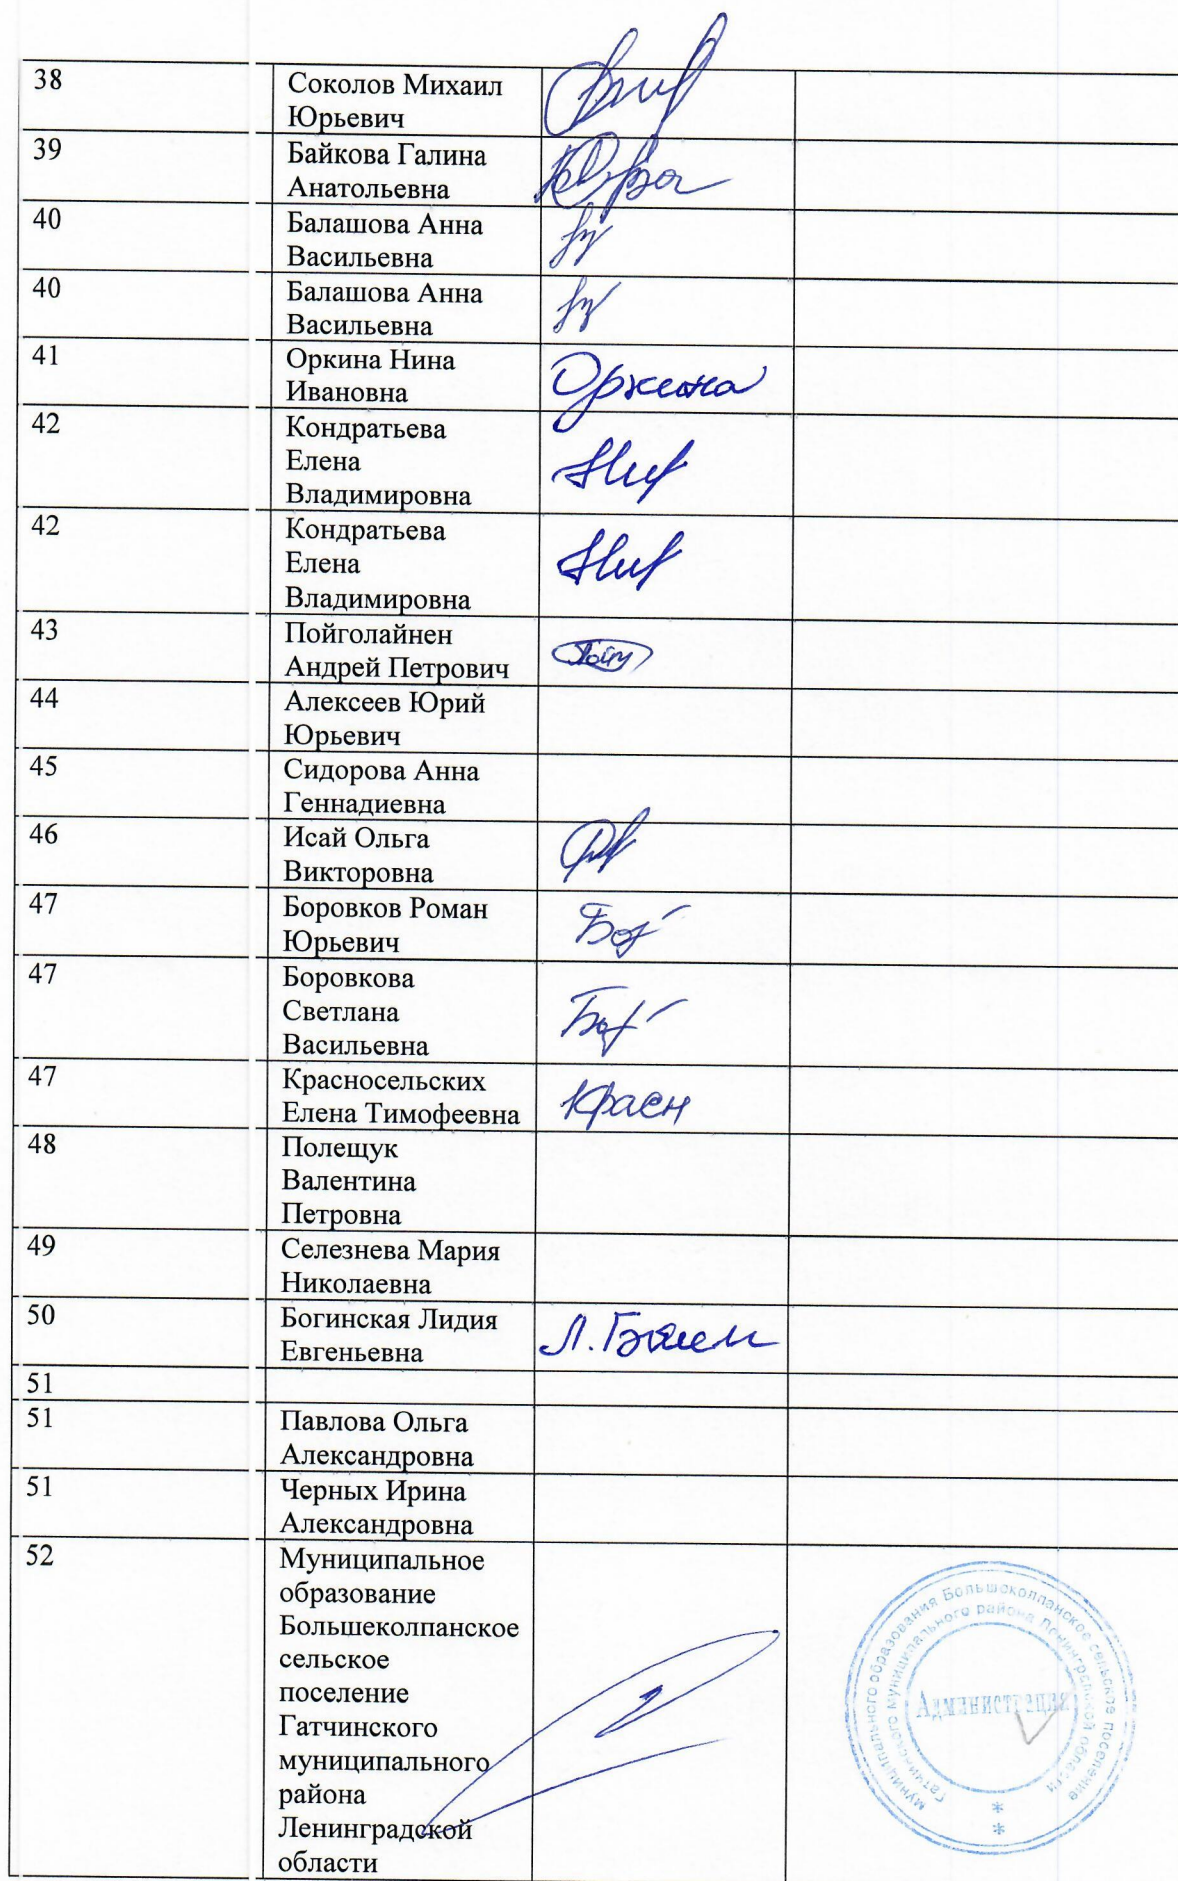 38
Соколов Михаил
Юрьевич
39
Байкова Галина
Анатольевна
40
Балашова Анна
Васильевна
40
Балашова Анна
Васильевна
41
Оркина Нина
Ивановна
Оркина
42
Кондратьева
Елена
Владимировна
42
Кондратьева
Елена
Владимировна
43
Пойголайнен
Андрей Петрович
44
Алексеев Юрий
Юрьевич
45
Сидорова Анна
Геннадиевна
46
Исай Ольга
Викторовна
47
Боровков Роман
Юрьевич
47
Боровкова
Светлана
Васильевна
47
Красносельских
Елена Тимофеевна
Красн
48
Полещук
Валентина
Петровна
49
Селезнева Мария
Николаевна
50
Богинская Лидия
Евгеньевна
51
51
Павлова Ольга
Александровна
51
Черных Ирина
Александровна
52
Муниципальное
образование
Большеколпанское
сельское
поселение
Гатчинского
муниципального
района
Ленинградской
области
муниципального образования Большеколпанское сельское поселение
Гатчинского муниципального района Ленинградской области
Администрация